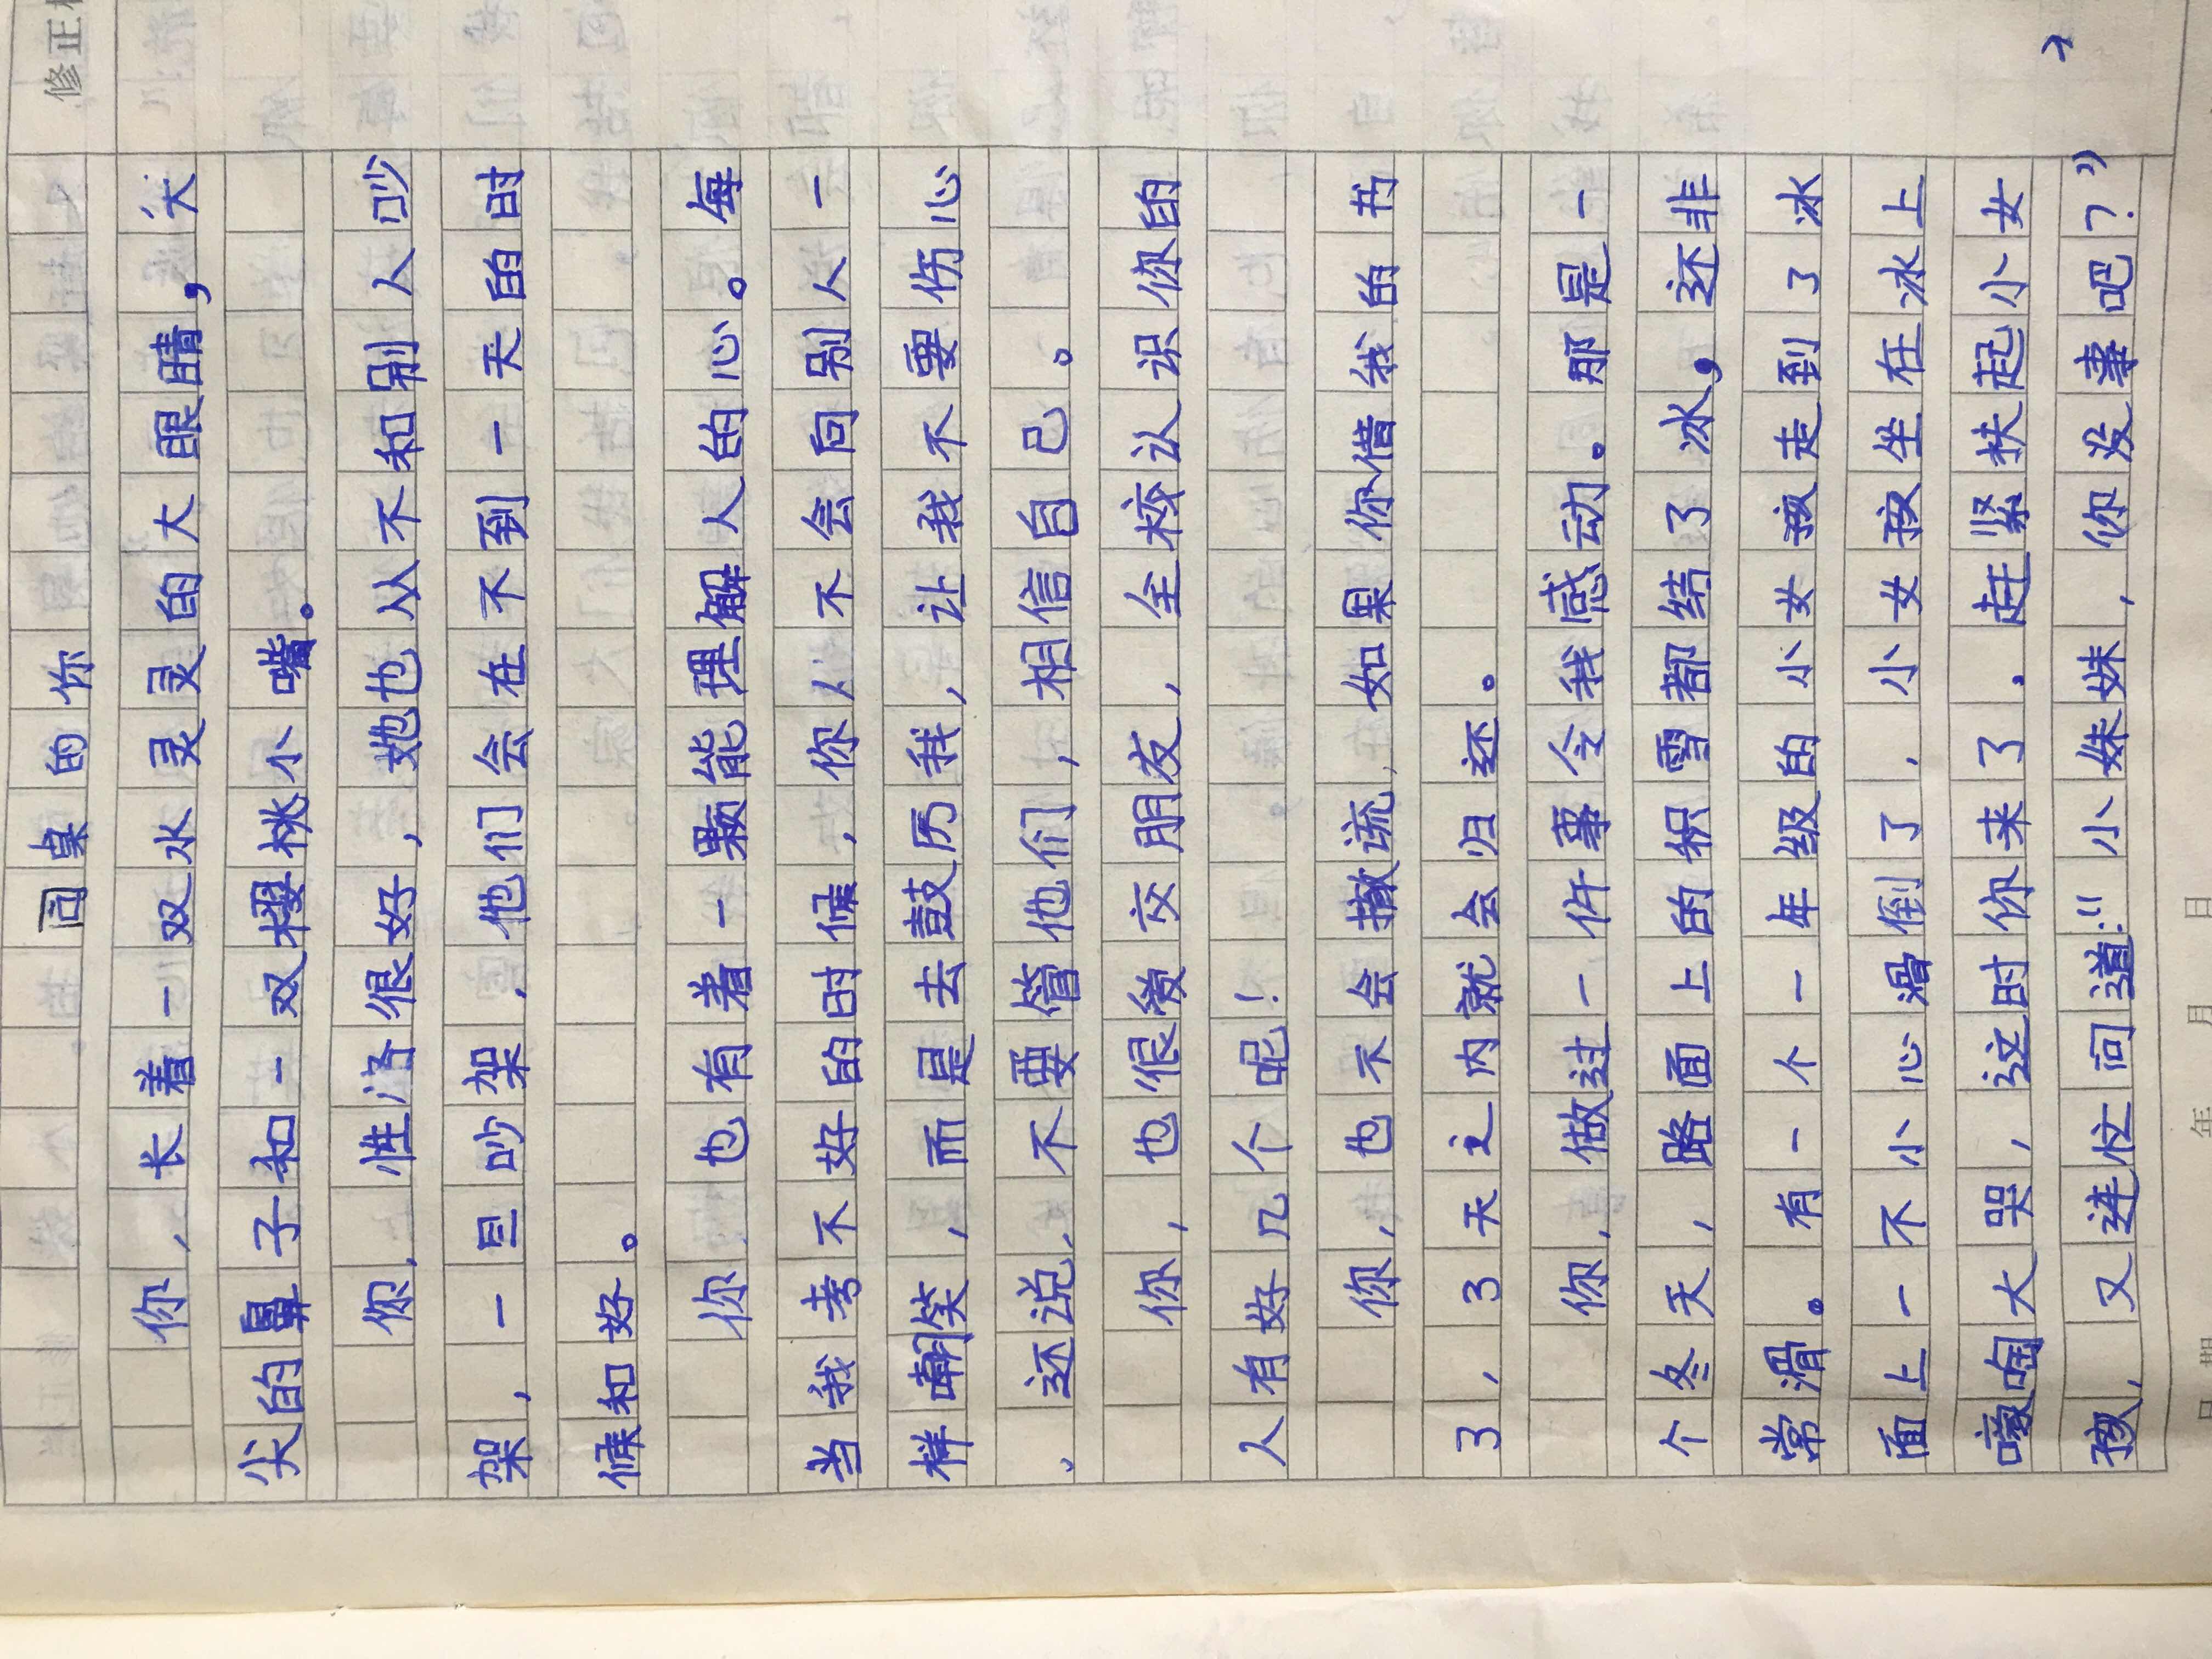 修正
同桌的你
你,长着一双水灵灵的大眼睛,尖
尖的鼻子和一双樱桃小嘴。
你,性洛很好,她也从不和别人吵
架,一旦吵架,他们会在不到一天的时
候和好。
你也有着一颗能理解人的心。每
当我考不好的时候,你从不会同别人一
样嘲笑,而是去鼓厉我,让我不要伤心
、还说,不要管他们,相信自己。
你,也很爱交朋友,全校认识你的
人有好几个呢!
你,也不会撒谎,如果你借我的书
3,3天之内就会归还。
你,做过一件事令我感动。那是一
个冬天,路面上的积雪都结了冰,还非
常滑。有一个一年级的小女孩走到了冰
面上一不小心滑倒了,小女孩坐在冰上
嚎啕大哭,这时你来了,赶紧扶起小女
孩,又连忙问道:"小妹妹,你没事吧?"
年 月 日